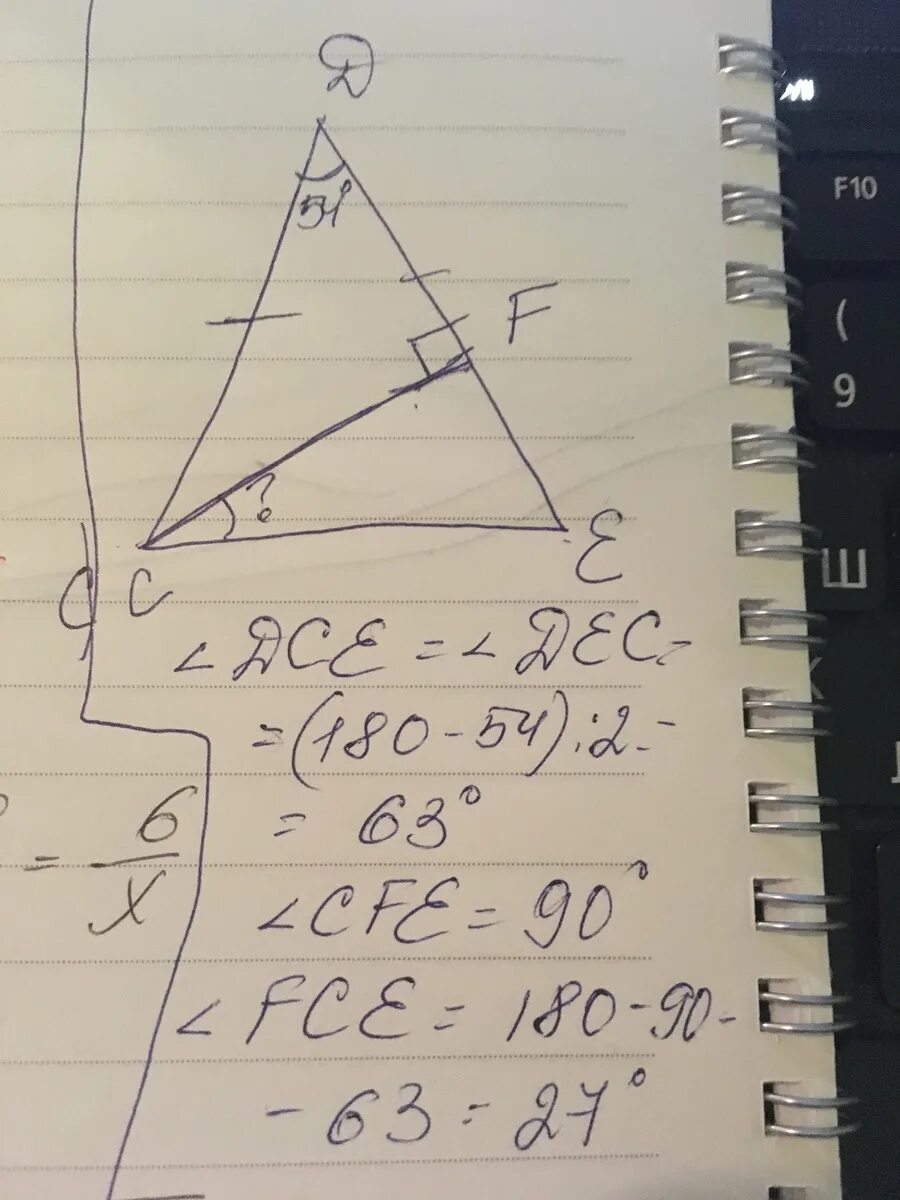 D
54°
F
?
C C
E
∠DCE = ∠DEC =
= (180 - 54) : 2 =
= 63°
∠CFE = 90°
∠FCE = 180 - 90 -
- 63 = 27°
= 6/x
F10
(
9
Ш